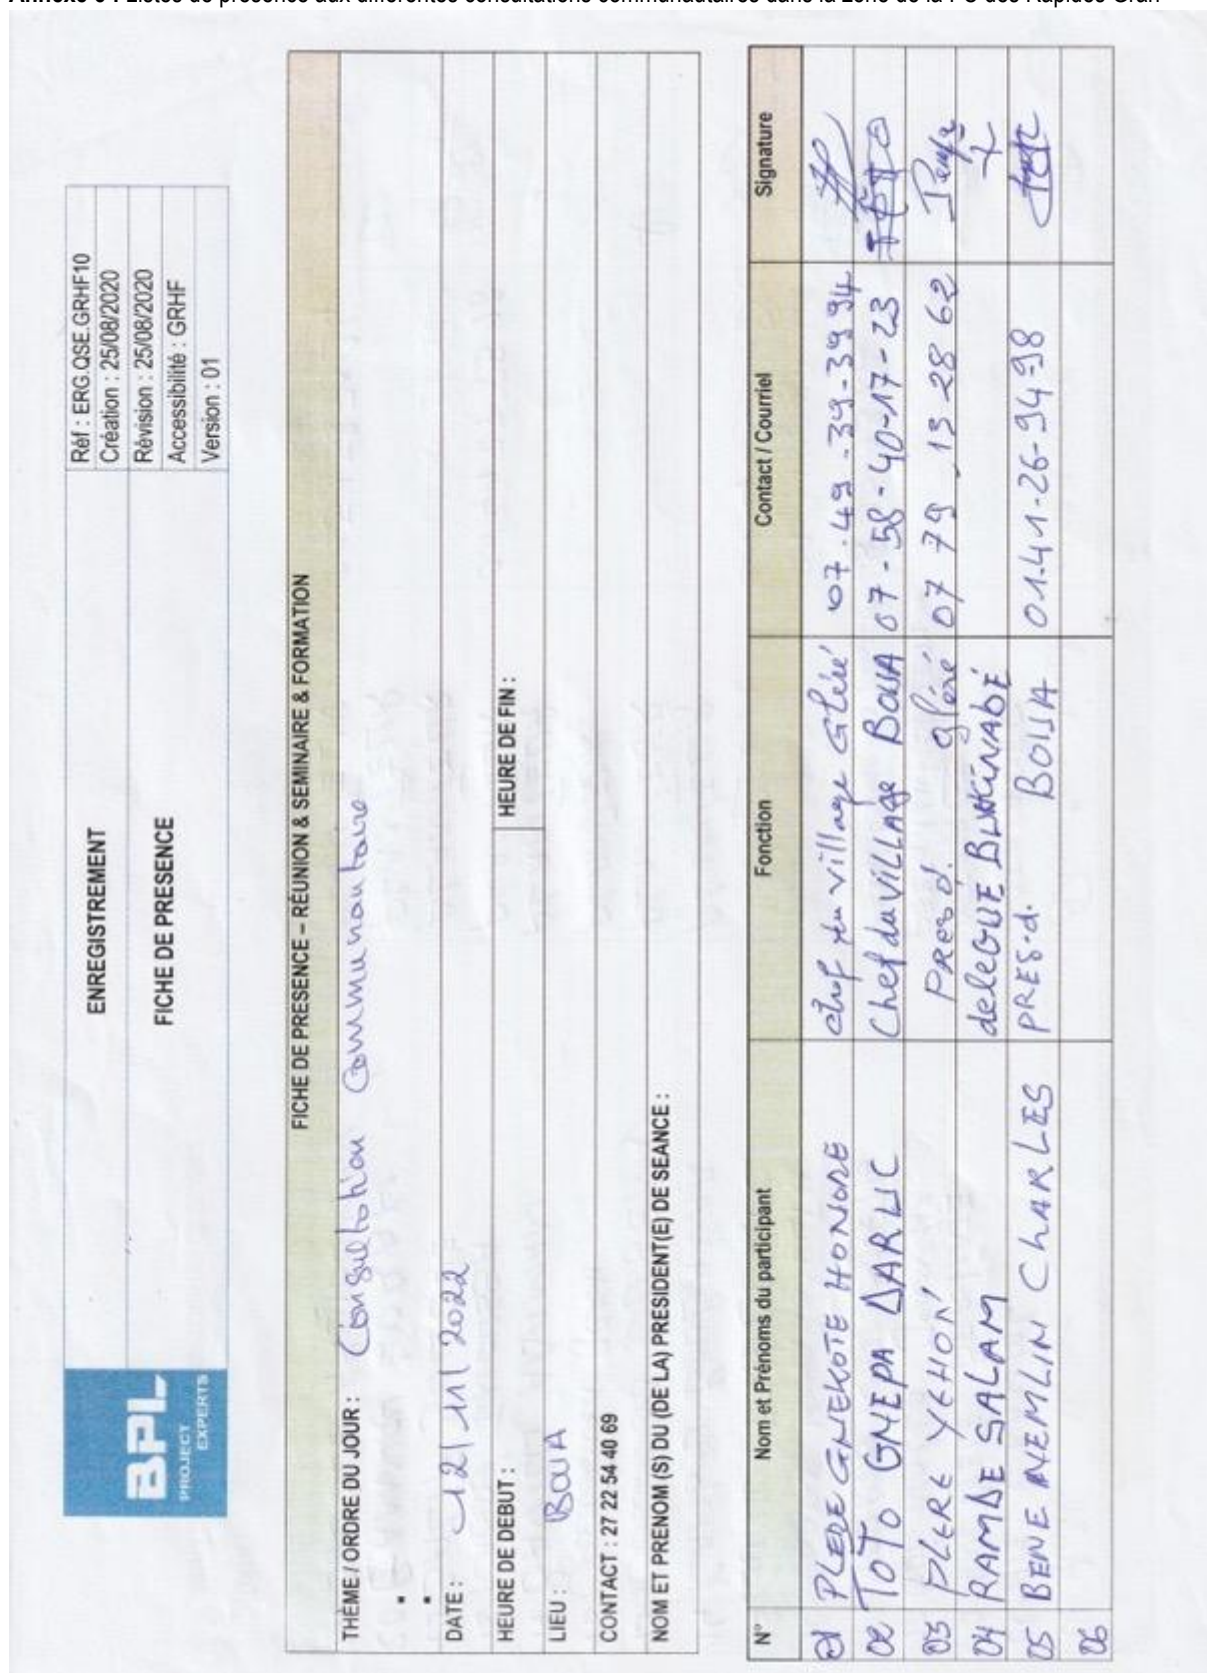 BPL
PROJECT
EXPERTS
ENREGISTREMENT
FICHE DE PRESENCE
Réf : ERG.QSE.GRHF10
Création : 25/08/2020
Révision : 25/08/2020
Accessibilité : GRHF
Version : 01
FICHE DE PRESENCE – RÉUNION & SEMINAIRE & FORMATION
THÈME / ORDRE DU JOUR : Consultation Communautaire
DATE : 12/11/2022
HEURE DE DEBUT : HEURE DE FIN :
LIEU : BOUA
CONTACT : 27 22 54 40 69
NOM ET PRENOM (S) DU (DE LA) PRESIDENT(E) DE SEANCE :
N° Nom et Prénoms du participant Fonction Contact / Courriel Signature
01 PLEDE GNEKOTE HONORE chef du village Gléré 07.49.39-3994
02 TOTO GNEPA DARLIC Chef du VILLAge BOUA 07-58-40-17-23 TOTO
03 YEHON Presd. gléré 07 79 13 28 62
04 RAMDE SALAM deleGUE BURKINABE
05 BENE NEMLIN ChARLES PRES.d. BOUA 01.41-26-94-98
06